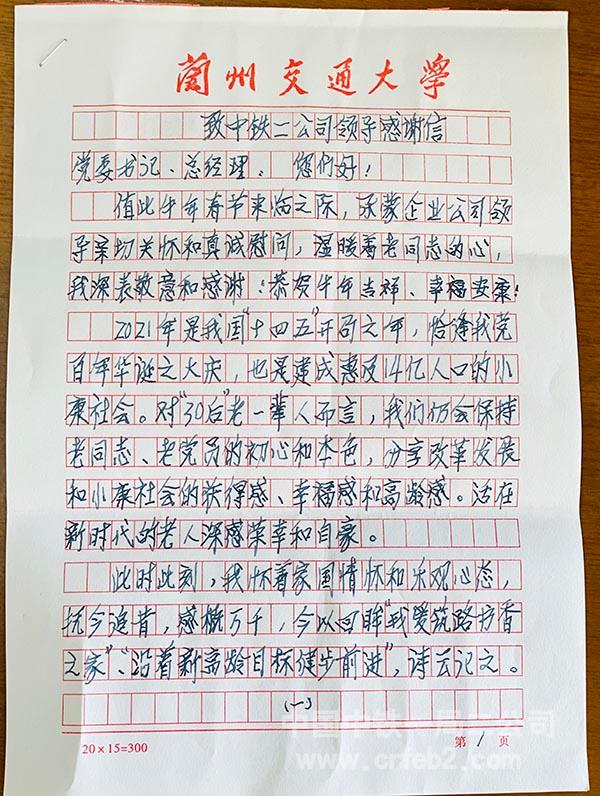 蘭州交通大学
致中铁二公司领导感谢信
党委书记、总经理：您们好！
值此牛年春节来临之际，承蒙企业公司领
导亲切关怀和真诚慰问，温暖着老同志的心，
我深表敬意和感谢！恭贺牛年吉祥、幸福安康！
2021年是我国"十四五"开局之年，恰逢我党
百年华诞之大庆，也是建成惠及14亿人口的小
康社会。对"30后"老一辈人而言，我们仍会保持
老同志、老党员的初心和本色，分享改革发展
和小康社会的获得感、幸福感和高龄感。活在
新时代的老人深感荣幸和自豪。
此时此刻，我怀着家国情怀和乐观心态，
抚今追昔，感概万千，今以回眸"我爱筑路书香
之家"、"沿着新高龄目标健步前进"，诗云记之。
(一)
20×15=300
第 1 页
中国中铁一局二公司
www.crfeb2.com